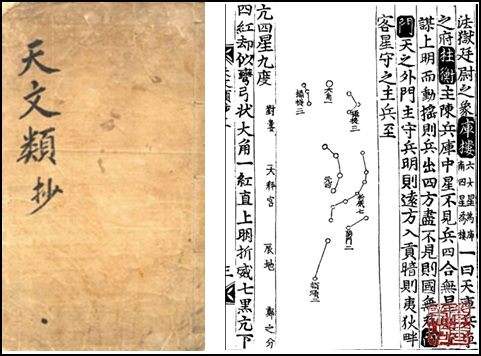 天文類抄
法獄廷尉之象庫樓六大星爲庫南四星爲樓一曰天庫兵車
之府柱衡主陳兵庫中星不見兵四合無
謀上明而動搖則兵出四方盡不見則國無
門天之外門主守兵明則遠方入貢暗則夷狄畔
客星守之主兵至
大角一
攝提三
攝提三
亢四
折威七
陽門二
頓頑二
亢四星九度 對婁 天秤宮 辰地 鄭之分
四紅却似彎弓狀大角一紅直上明折威七黑亢下
三